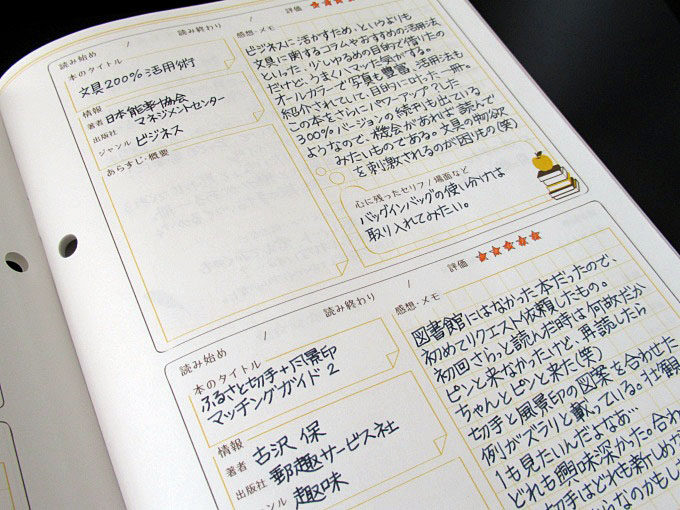 読み始め / 読み終わり / 評価
本のタイトル
文具200%活用術
情報
著者 日本能率協会
マネジメントセンター
出版社
ジャンル ビジネス
あらすじ・概要
感想・メモ
ビジネスに活かすため、というよりも
文具に関するコラムやおすすめの活用法
といった、少しゆるめの目的で借りたの
だけど、うまくハマった気がする。
オールカラーで写真も豊富、活用法も
紹介されていて、目的に叶った一冊。
この本をさらにパワーアップ?した
300%バージョンの続刊も出ている
ようなので、機会があれば読んで
みたいものである。文具の物欲
を刺激されるのが困りもの(笑)
心に残ったセリフ/場面など
バッグインバッグの使い分けは
取り入れてみたい。
読み始め / 読み終わり / 評価
本のタイトル
ふるさと切手+風景印
マッチングガイド2
情報
著者 古沢 保
出版社 郵趣サービス社
ジャンル 趣味
感想・メモ
図書館にはなかった本だったので、
初めてリクエスト依頼したもの。
初回さらっと読んだ時は何故だか
ピンと来なかったけど、再読したら
ちゃんとピンと来た(笑)
切手と風景印の図案を合わせた
例がズラリと載っている。壮観
1も見たいんだよなあ…
どれも興味深かった。合わ
切手はどれも新しめな